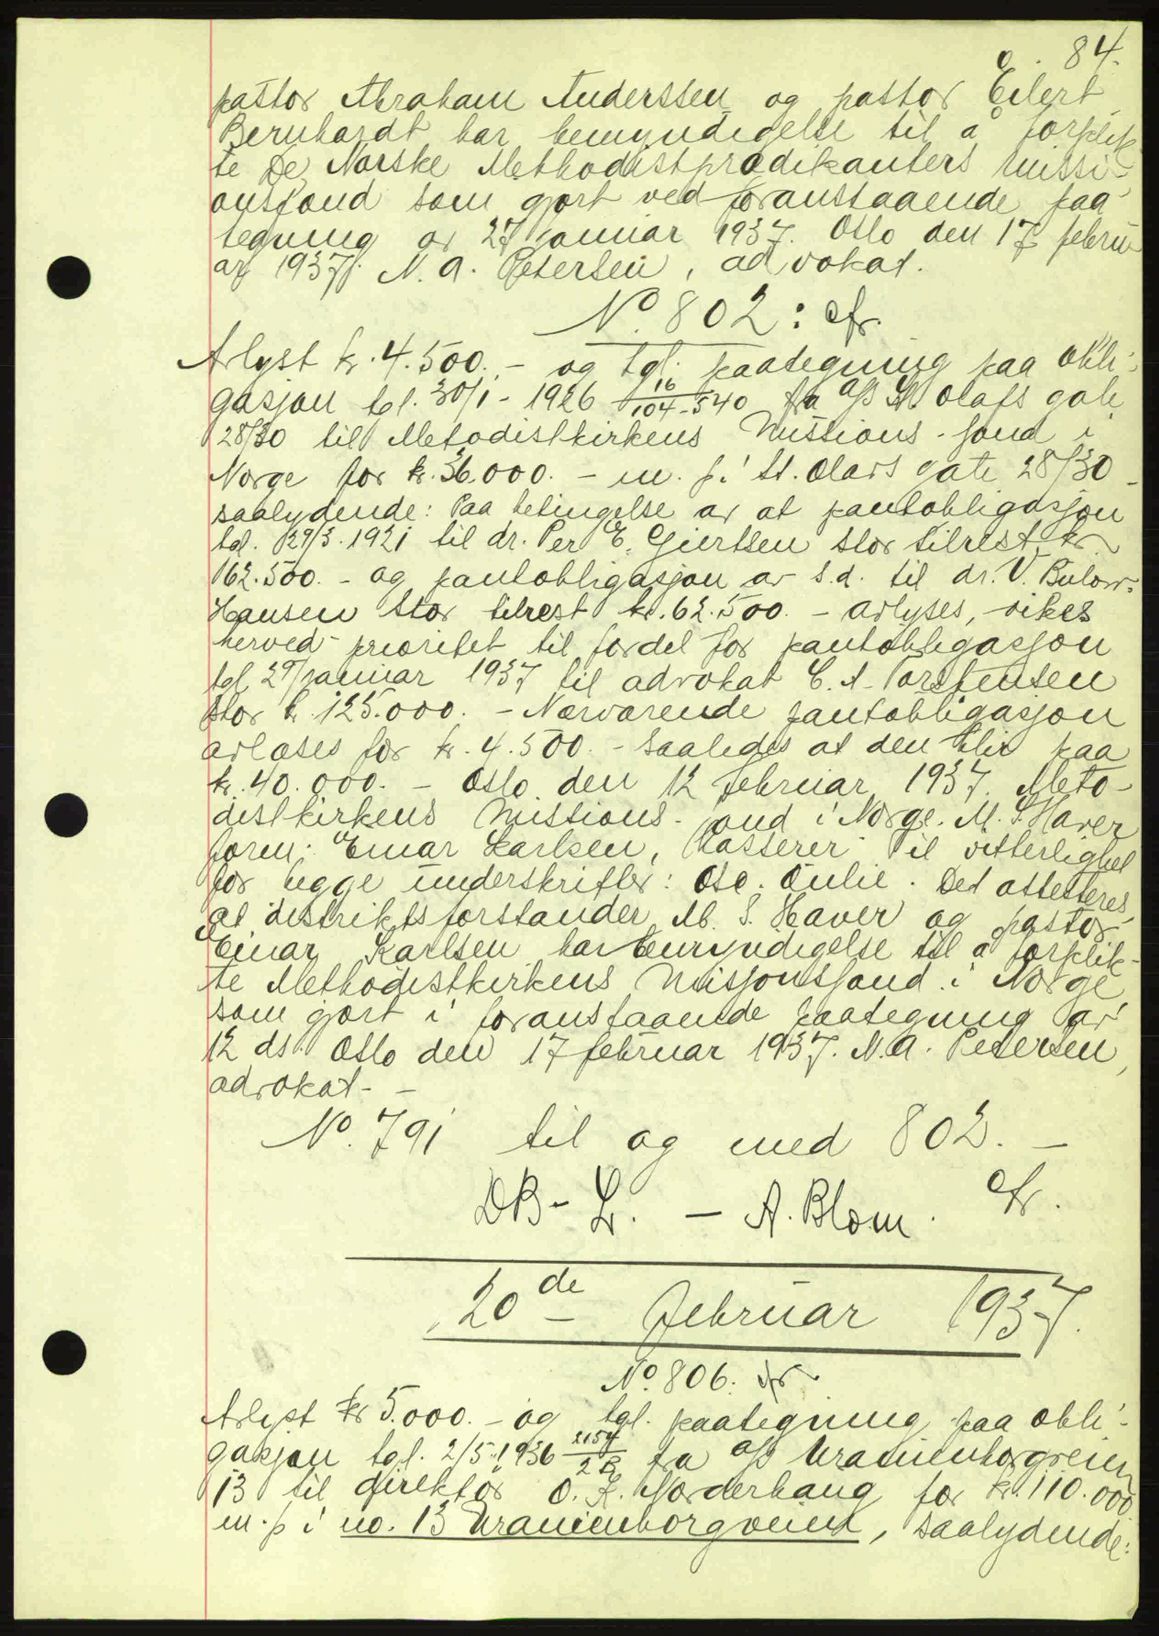 84.
pastor Abraham Anderssen og pastor Eilert
Bernhardt har bemyndigelse til å forplik-
te De Norske Methodistprædikanters missi-
onsfond som gjort ved foranstaaende paa-
tegning av 27 januar 1937. Oslo den 17 febru-
ar 1937. N. A. Petersen, advokat.
No. 802:
Avlyst kr. 4.500.- og tgl. paategning paa obli-
gasjon tgl. 30/1- 1926 16/104-540 fra A/S St. Olafs gate
28/30 til Metodistkirkens Missions-fond i
Norge for kr. 36.000.- m. p. i St. Olavs gate 28/30
saalydende: Paa betingelse av at pantobligasjon
tgl. 29/3.1921 til dr. Per E. Giertsen stor tilrest kr
162.500.- og pantobligasjon av s.d. til dr. V. Bulow-
Hansen stor tilrest kr. 62.500.- avlyses, vikes
herved prioritet til fordel for pantobligasjon
tgl. 29/januar 1937 til advokat C. A. Torstensen
stor kr 125.000.- Nærværende pantobligasjon
avløses for kr. 4.500.- saaledes at den blir paa
kr. 40.000.- Oslo den 12 februar 1937. Meto-
distkirkens Missions-fond i Norge. M. S. Haver
form. Einar Karlsen, Kasserer Til vitterlighet
for begge underskrifter: Osc. Julie. Det attesteres
at distriktsforstander M. S. Haver og pastor
Einar Karlsen har bemyndigelse til å forplik-
te Methodistkirkens Misjonsfond i Norge
som gjort i foranstaaende paategning av
12 ds. Oslo den 17 februar 1937. N. A. Petersen,
advokat.-
No. 791 til og med 802.-
DB - Lr. - A. Blom.
20de februar 1937.
No. 806.
Avlyst kr 5.000.- og tgl. paategning paa obli-
gasjon tgl. 2/5-1936 fra A/S Uranienborgveien
13 til direktør O. K. Norderhaug for kr. 110.000
m. p i no. 13 Uranienborgveien, saalydende: